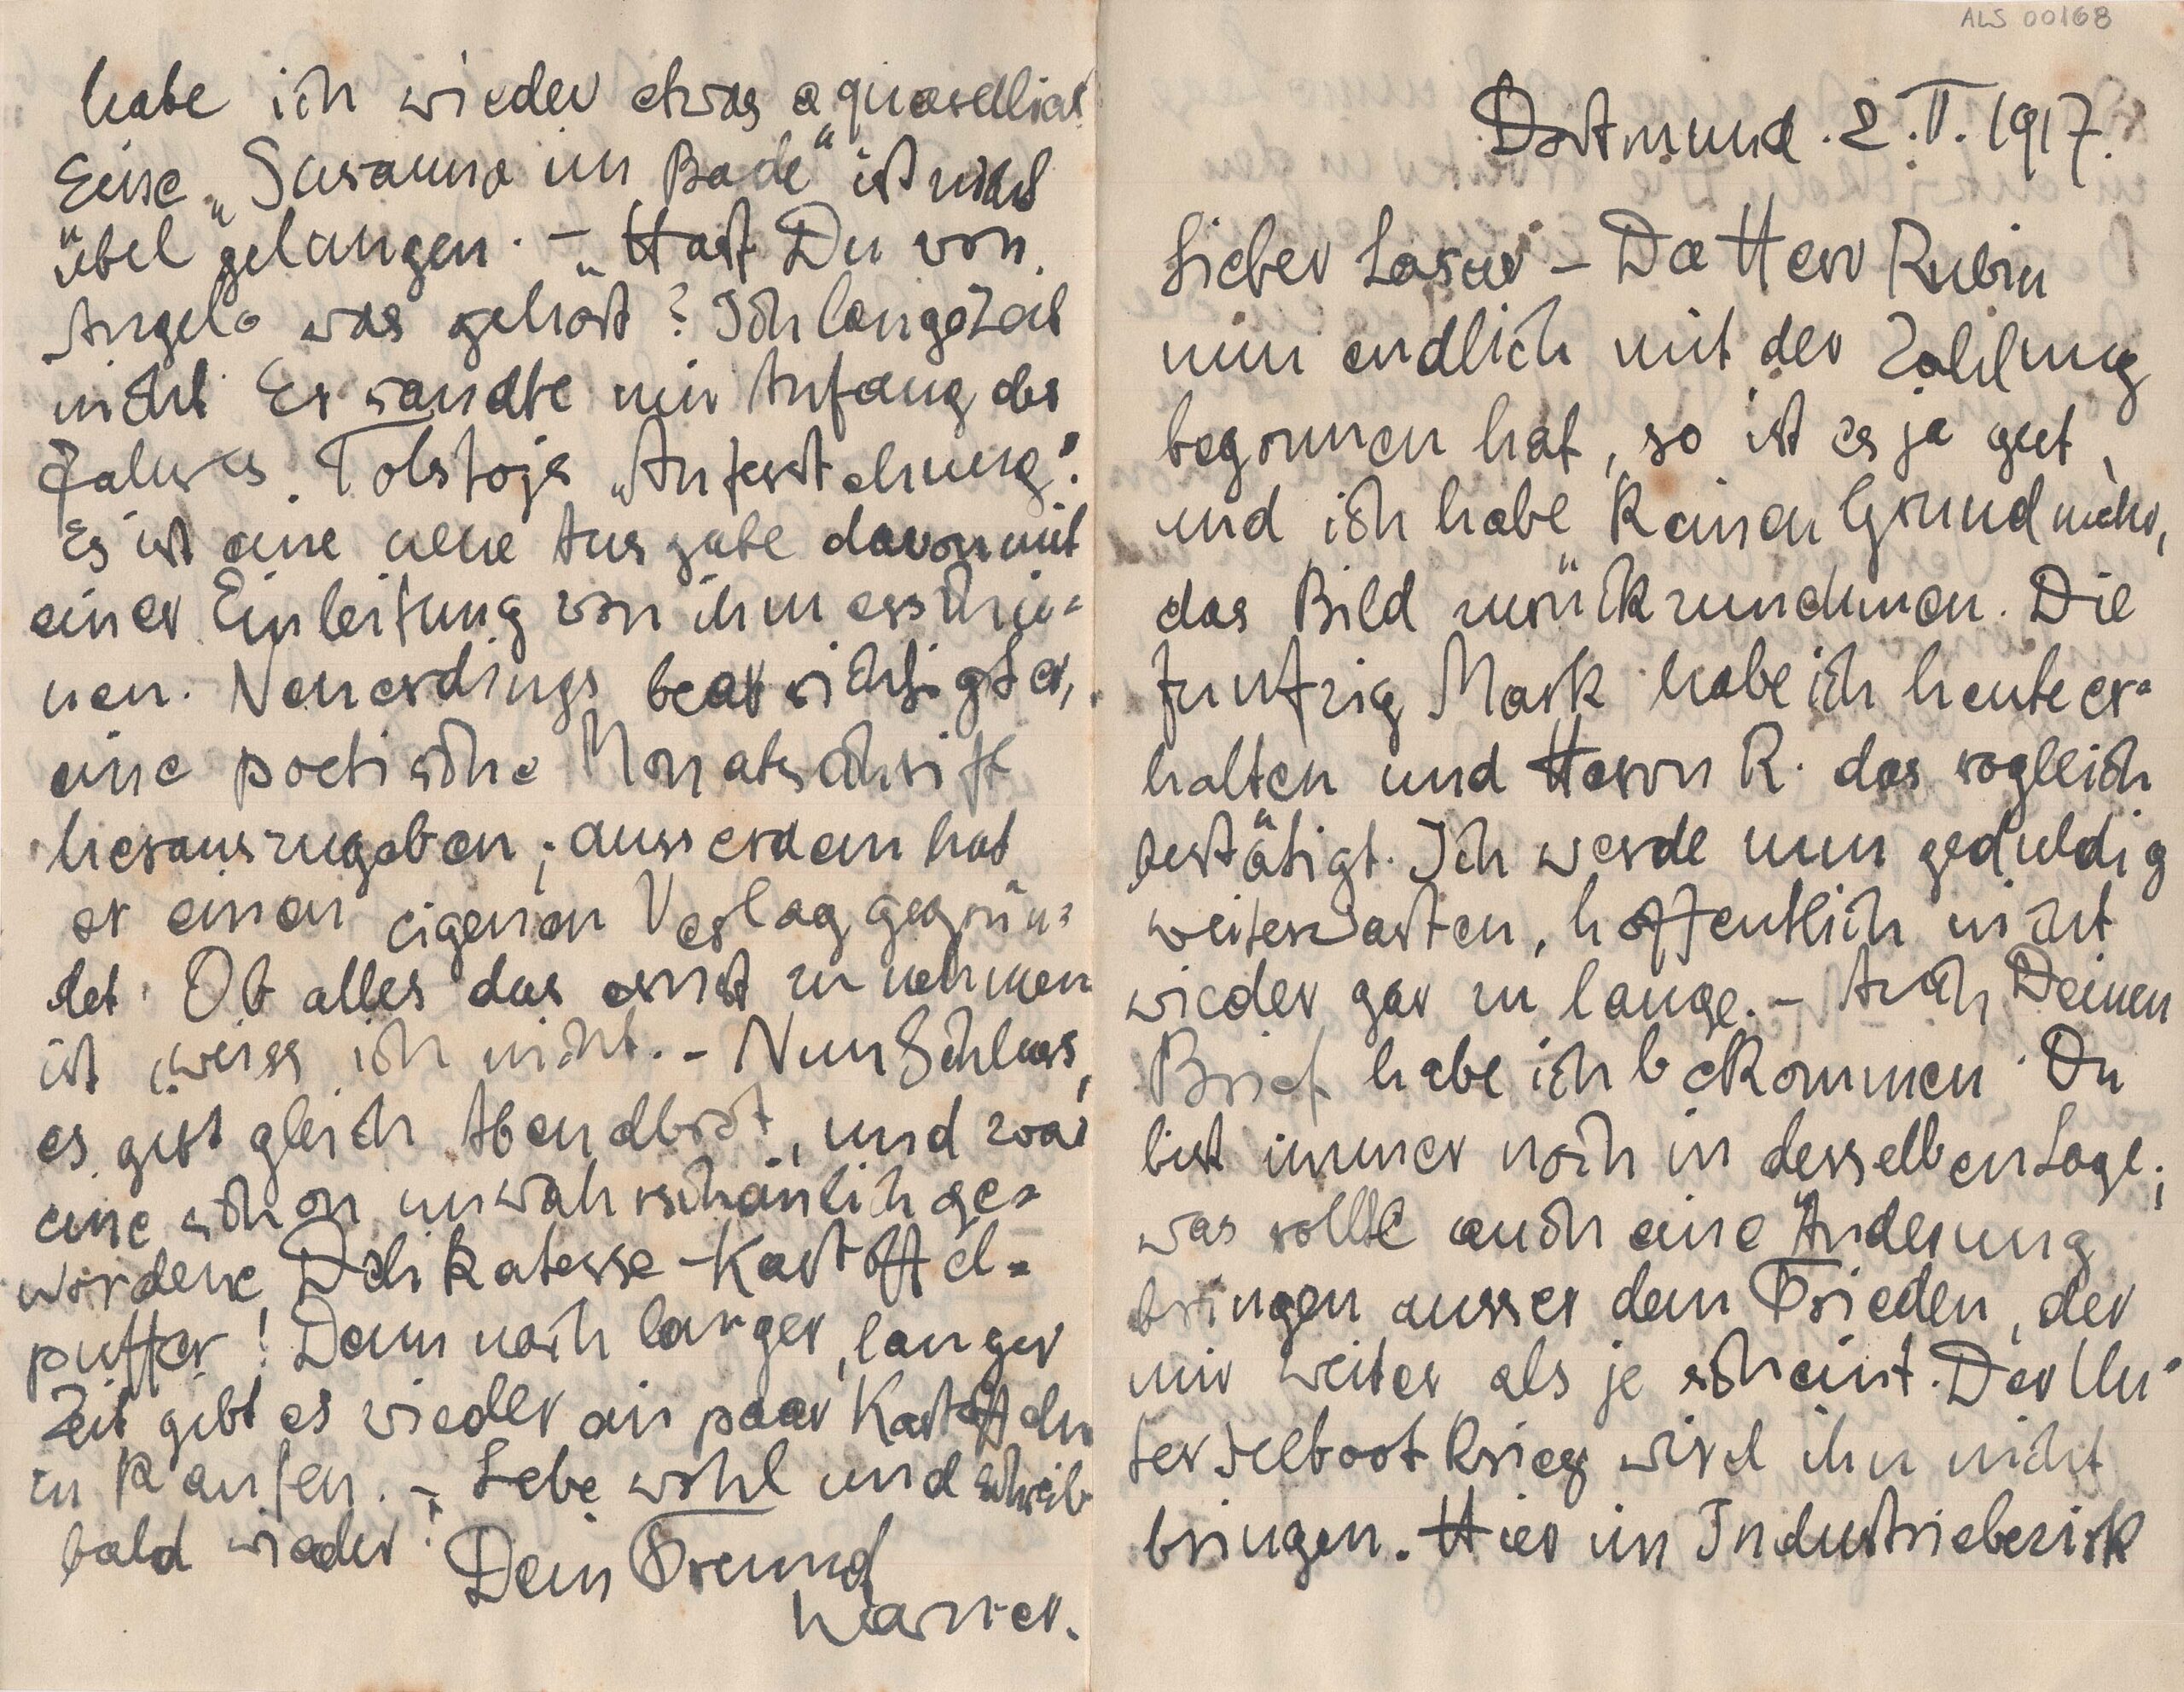 ALS 00168
Dortmund. 2. V. 1917.
Lieber Lasar – Da Herr Rubin
nun endlich mit der Zahlung
begonnen hat, so ist es ja gut,
und ich habe keinen Grund mehr,
das Bild zurückzunehmen. Die
funfzig Mark habe ich heute er=
halten und Herrn R. das sogleich
bestätigt. Ich werde nun geduldig
weiterwarten, hoffentlich nicht
wieder gar zu lange. – Auch Deinen
Brief habe ich bekommen. Du
bist immer noch in derselben Lage;
was sollte auch eine Änderung
bringen ausser dem Frieden, der
mir weiter als je scheint. Der Un=
terseeboot krieg wird ihn nicht
bringen. Hier im Industriebezirk
habe ich wieder etwas aquarelliert
Eine „Susanna im Bade“ ist nicht
übel gelungen. – Hast Du von
Angelo was gehört? Ich lange Zeit
nicht. Er sandte mir Anfang des
Jahres Tolstojs „Auferstehung“.
Es ist eine neue Ausgabe davon mit
einer Einleitung von ihm erschie=
nen. Neuerdings beabsichtigt er,
eine poetische Monatsschrift
herauszugeben; ausserdem hat
er einen eigenen Verlag gegrün=
det. Ob alles das ernst zu nehmen
ist, weiss ich nicht. – Nun Schluss,
es gibt gleich Abendbrot, und zwar
eine schon unwahrscheinlich ge=
wordene Delikatesse – Kartoffel=
puffer! Denn nach langer, langer
Zeit gibt es wieder ein paar Kartoffeln
zu kaufen. – Lebe wohl und schreib
bald wieder!
Dein Freund
Warner.